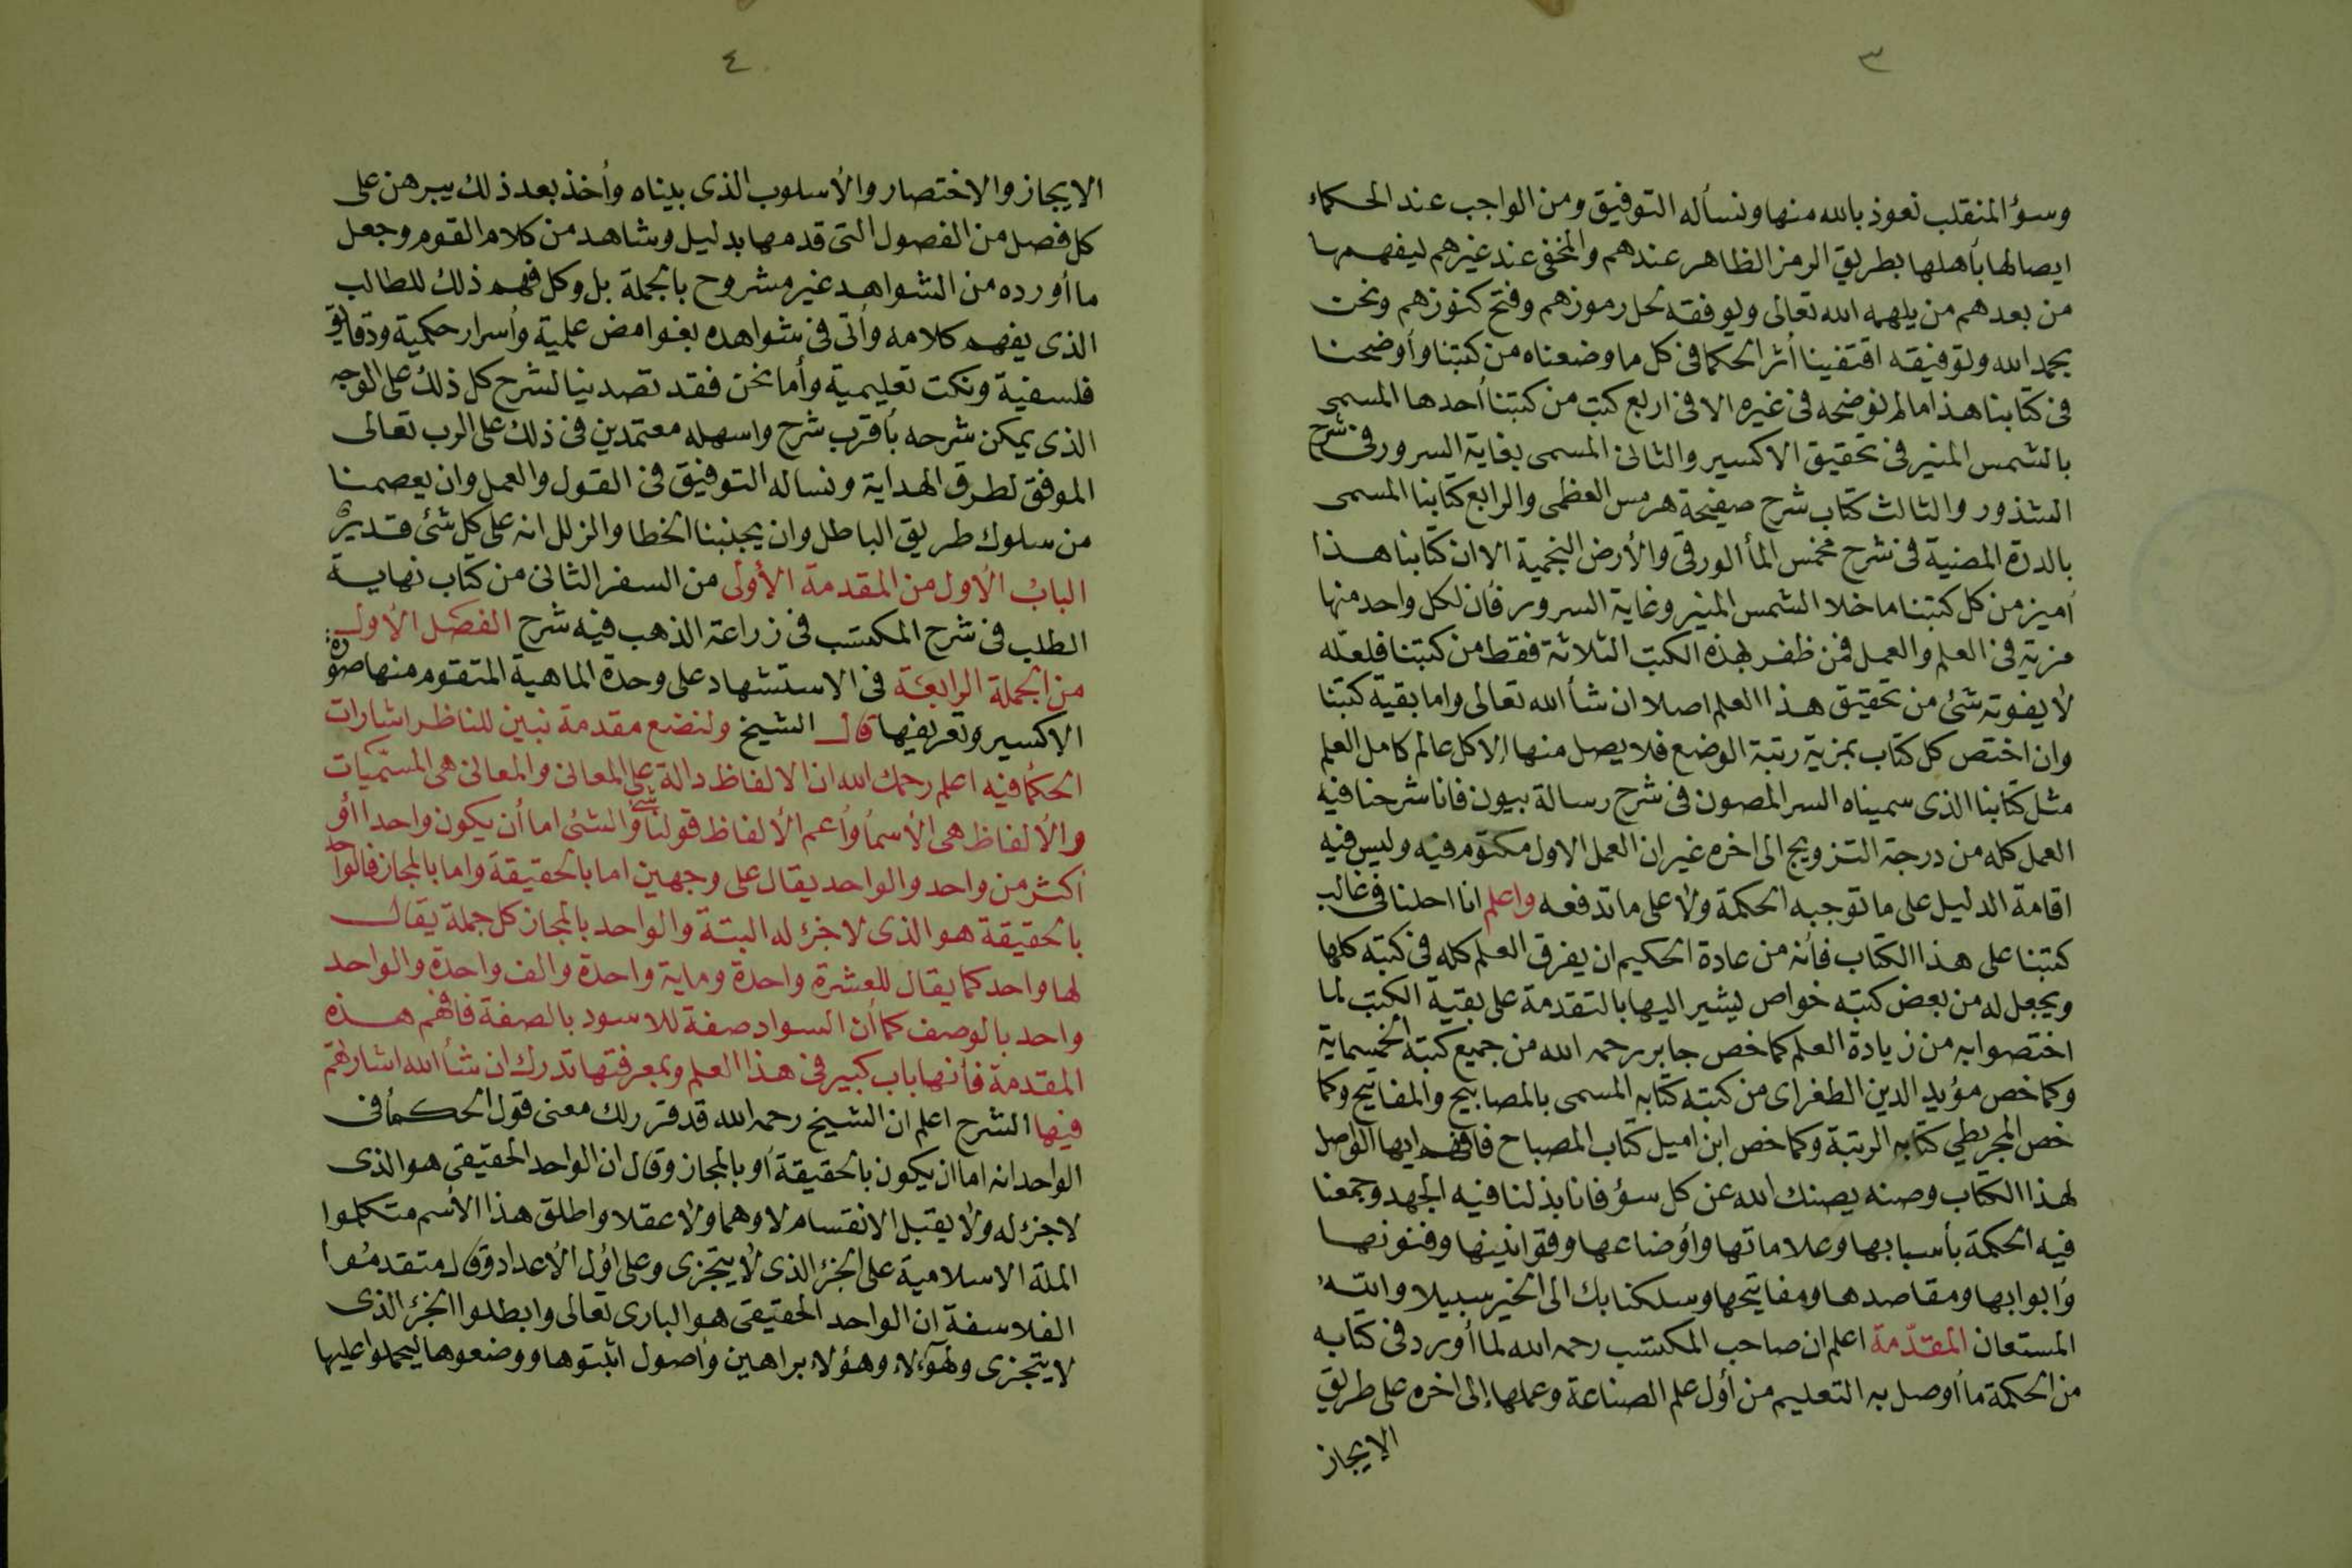 ٣
وسؤ المنقلب نعوذ بالله منها ونسأله التوفيق ومن الواجب عند الحكماء
ايصالها بأهلها بطريق الرمز الظاهر عندهم والمخفى عند غيرهم ليفهمها
من بعدهم من يلهمه الله تعالى ويوفقه لحل رموزهم وفتح كنوزهم ونحن
بحمد الله وتوفيقه اقتفينا أثر الحكما فى كل ما وضعناه من كتبنا وأوضحنا
فى كتابنا هذا مالم نوضحه فى غيره الا فى اربع كتب من كتبنا أحدها المسمى
بالشمس المنير فى تحقيق الاكسير والثانى المسمى بغاية السرور فى شرح
الشذور والثالث كتاب شرح صفيحة هرمس العظمى والرابع كتابنا المسمى
بالدرة المضنية فى شرح مخمس المأ الورقى والأرض النجمية الا ان كتابنا هذا
أميز من كل كتبنا ما خلا الشمس المنير وغاية السرور فأن لكل واحد منها
مزية فى العلم والعمل فمن ظفر بهذه الكتب الثلاثة فقط من كتبنا فلعله
لا يفوته شئ من تحقيق هذا العلم اصلا ان شأ الله تعالى واما بقية كتبنا
وان اختص كل كتاب بمزية رتبة الوضع فلا يصل منها إلا كل عالم كامل العلم
مثل كتابنا الذى سميناه السر المصون فى شرح رسالة بيون فانا شرحنا فيه
العمل كله من درجة التزويج الى اخره غير ان العمل الاول مكتوم فيه وليس فيه
اقامة الدليل على ما توجبه الحكمة ولا على ما تدفعه واعلم انا احلنا فى غالب
كتبنا على هذا الكتاب فأنه من عادة الحكيم ان يفرق العلم كله فى كتبه كلها
ويجعل له من بعض كتبه خواص يشير اليها بالتقدمة على بقية الكتب لما
اختصوا به من زيادة العلم كما خص جابر رحمه الله من جميع كتبه الخمسماية
وكما خص مؤيد الدين الطغراى من كتبه كتابه المسمى بالمصابيح والمفاتيح وكما
خص المجريطي كتابه الرتبة وكما خص ابن اميل كتاب المصباح فافهم ايها الواصل
لهذا الكتاب وصنه يصنك الله عن كل سؤ فانا بذلنا فيه الجهد وجمعنا
فيه الحكمة بأسبابها وعلاماتها وأوضاعها وقوانينها وفنونها
وأبوابها ومقاصدها ومفاتيحها وسلكنا بك الى الخير سبيلا والله
المستعان المقدّمة اعلم ان صاحب المكتسب رحمه الله لما أورد فى كتابه
من الحكمة ما أوصل به التعليم من أول علم الصناعة وعملها إلى اخره على طريق
الايجاز
٤
الايجاز والاختصار والأسلوب الذى بيناه وأخذ بعد ذلك يبرهن على
كل فصل من الفصول التى قدمها بدليل وشاهد من كلام القوم وجعل
ما أورده من الشواهد غير مشروح بالجملة بل وكل فهم ذلك للطالب
الذى يفهم كلامه وأتى فى شواهده بغوامض علمية وأسرار حكمية ودقايق
فلسفية ونكت تعليمية وأما نحن فقد تصدينا لشرح كل ذلك على الوجه
الذى يمكن شرحه بأقرب شرح واسهله معتمدين فى ذلك على الرب تعالى
الموفق لطرق الهداية ونساله التوفيق فى القول والعمل وان يعصمنا
من سلوك طريق الباطل وان يجنبنا الخطا والزلل انه على كل شئ قدير
الباب الأول من المقدمة الأولى من السفر الثانى من كتاب نهاية
الطلب فى شرح المكتسب فى زراعة الذهب فيه شرح الفصل الأول
من الجملة الرابعة فى الاستشهاد على وحدة الماهية المتقوم منها صورة
الإكسير وتعريفها قال الشيخ ولنضع مقدمة نبين للناظر اشارات
الحكما فيه اعلم رحمك الله ان الالفاظ دالة على المعانى والمعانى هى المسمّيات
والألفاظ هى الأسمأ وأعم الألفاظ قولنا شئ والشئ اما أن يكون واحدا أو
أكثر من واحد والواحد يقال على وجهين اما بالحقيقة واما بالمجاز فالواحد
بالحقيقة هو الذى لا جزؤ له البتة والواحد بالمجاز كل جملة يقال
لها واحد كما يقال للعشرة واحدة وماية واحدة والف واحدة والواحد
واحد بالوصف كما أن السواد صفة للاسود بالصفة فافهم هذه
المقدمة فأنها باب كبير فى هذا العلم وبمعرفتها تدرك ان شأ الله اشاراتهم
فيها الشرح اعلم ان الشيخ رحمه الله قد قرر لك معنى قول الحكمأ فى
الواحد انه اما ان يكون بالحقيقة أو بالمجاز وقال ان الواحد الحقيقى هو الذى
لا جزؤ له ولا يقبل الانقسام لا وهما ولا عقلا واطلق هذا الأسم متكلموا
الملة الاسلامية على الجزؤ الذى لا يتجزى وعلى أول الأعداد وقال متقدموا
الفلاسفة ان الواحد الحقيقى هو البارى تعالى وابطلوا الجزؤ الذى
لا يتجزى ولهؤلاء وهؤلاء براهين وأصول اثبتوها ووضعوها ليحملوا عليها